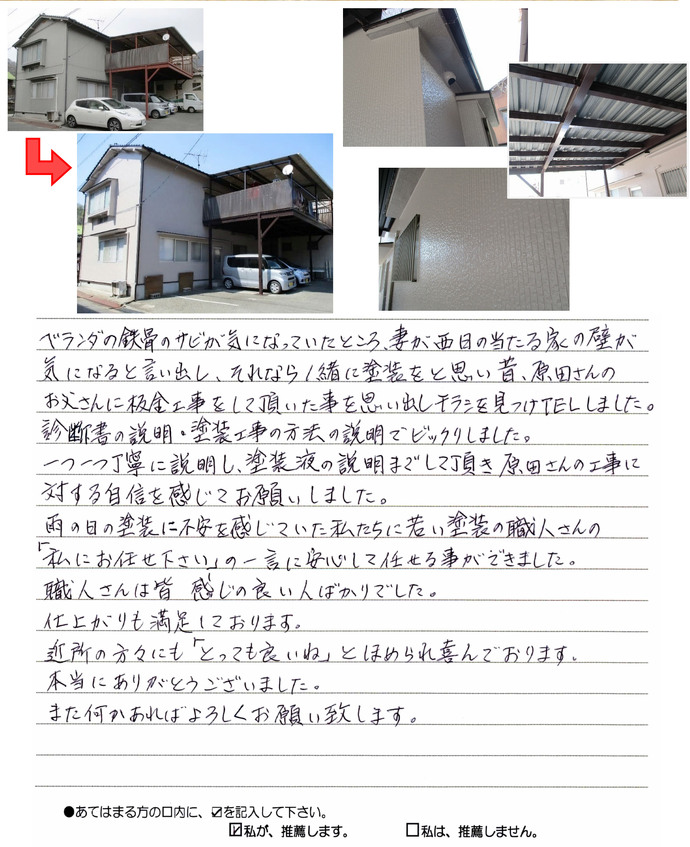 ベランダの鉄骨のサビが気になっていたところ、妻が西日の当たる家の壁が
気になると言い出し、それなら1緒に塗装をと思い昔、原田さんの
お父さんに板金工事をして頂いた事を思い出しチラシを見つけTELしました。
診断書の説明・塗装工事の方法の説明でビックリしました。
一つ一つ丁寧に説明し、塗装液の説明までして頂き原田さんの工事に
対する自信を感じてお願いしました。
雨の日の塗装に不安を感じていた私たちに若い塗装の職人さんの
「私にお任せ下さい」の一言に安心して任せる事ができました。
職人さんは皆 感じの良い人ばかりでした。
仕上がりも満足しております。
近所の方々にも「とっても良いね」とほめられ喜んでおります。
本当にありがとうございました。
また何かあればよろしくお願い致します。
●あてはまる方の口内に、☑を記入して下さい。
☑私が、推薦します。 □私は、推薦しません。